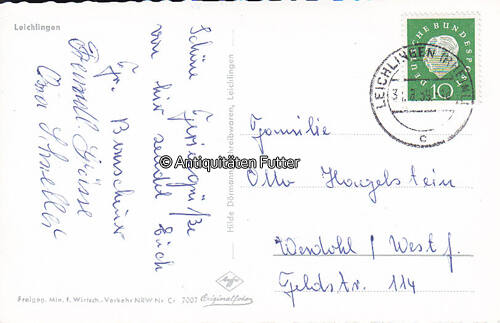 Leichlingen
Schöne Feriengrüße
von hier sendet Euch
Fr.
Freundl. Grüsse
Hilde Dörmann, Schreibwaren, Leichlingen
© Antiquitäten Futter
DEUTSCHE BUNDESPOST
10
LEICHLINGEN (RHEINL)
c
Familie
Otto Hagelstein
Werdohl / Westf.
Feldstr. 114
Agfa
Originalfoto
Freigeg. Min. f. Wirtsch.-Verkehr NRW Nr. Cr 7007